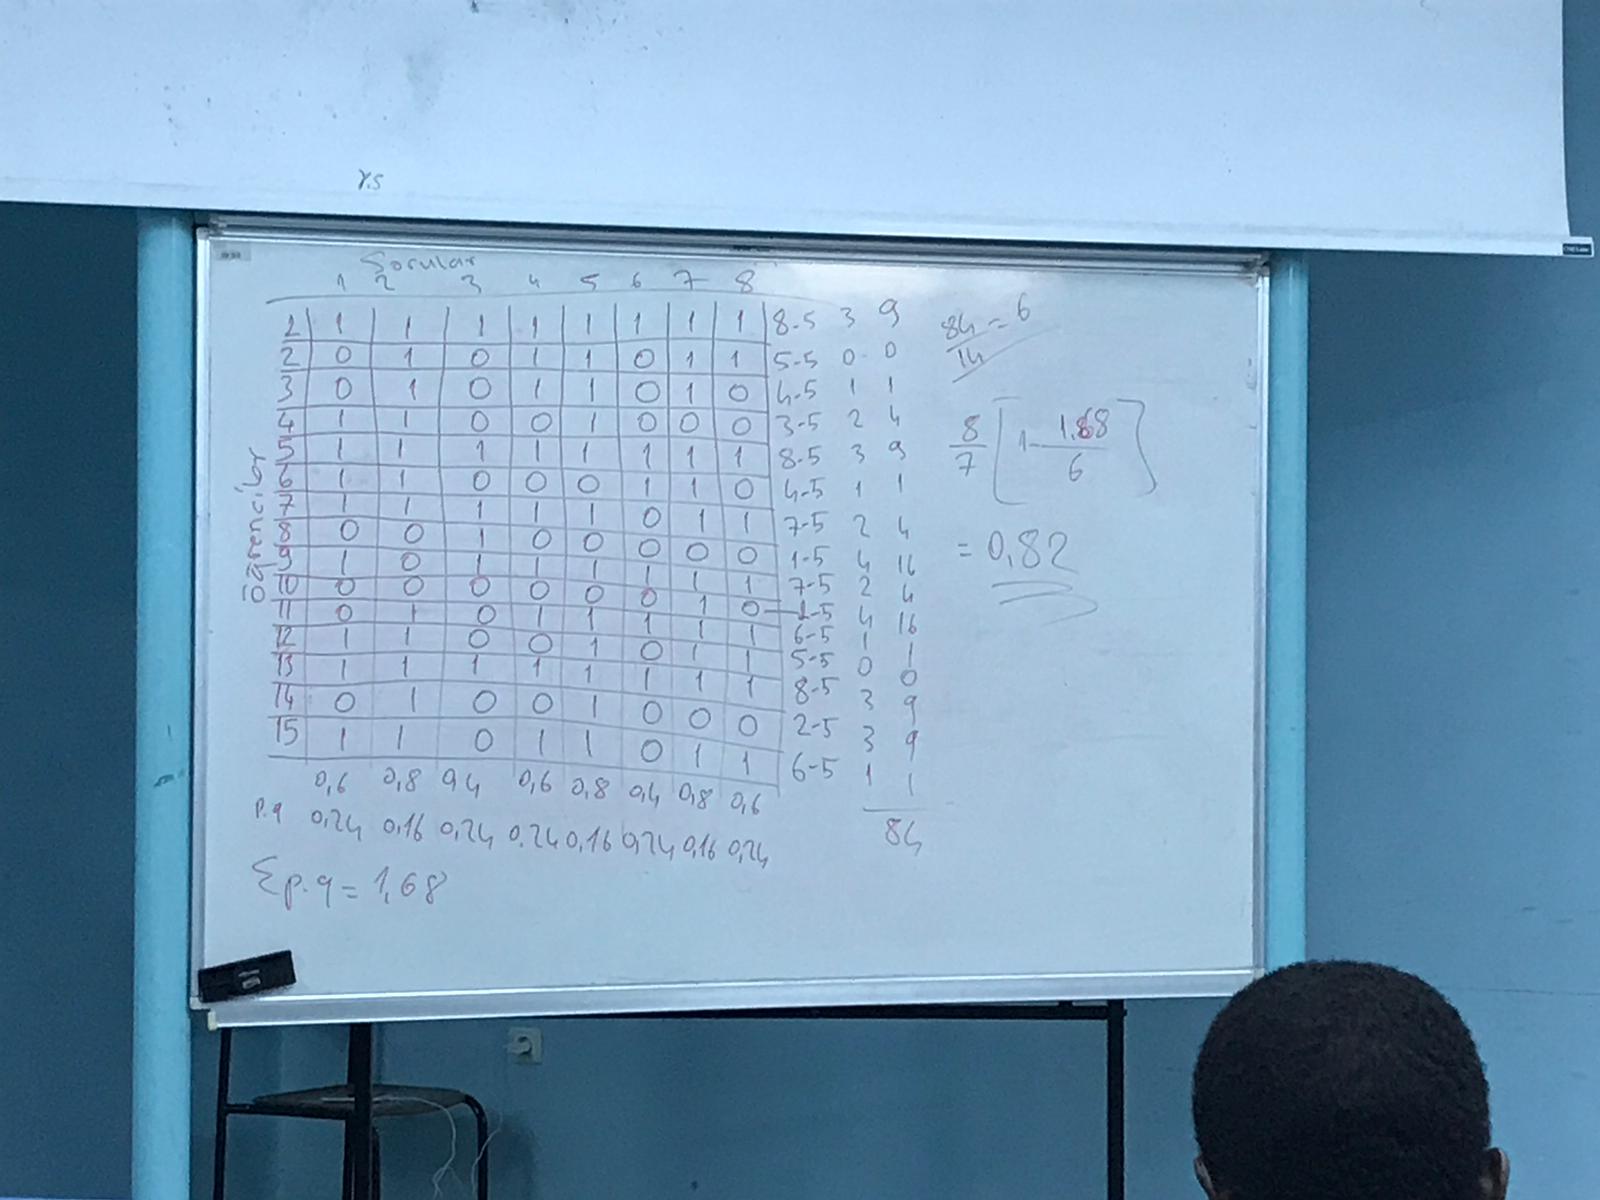 γ.5
Sorular
1 2 3 4 5 6 7 8
Öğrenciler
1 1 1 1 1 1 1 1 1 8-5 3 9
2 0 1 0 1 1 0 1 1 5-5 0 0
3 0 1 0 1 1 0 1 0 4-5 1 1
4 1 1 0 0 1 0 0 0 3-5 2 4
5 1 1 1 1 1 1 1 1 8-5 3 9
6 1 1 0 0 0 1 1 0 4-5 1 1
7 1 1 1 1 1 0 1 1 7-5 2 4
8 0 0 1 0 0 0 0 0 1-5 4 16
9 1 0 1 1 1 1 1 1 7-5 2 4
10 0 0 0 0 0 0 1 0 1-5 4 16
11 0 1 0 1 1 1 1 1 6-5 1 1
12 1 1 0 0 1 0 1 1 5-5 0 0
13 1 1 1 1 1 1 1 1 8-5 3 9
14 0 1 0 0 1 0 0 0 2-5 3 9
15 1 1 0 1 1 0 1 1 6-5 1 1
0,6 0,8 0,4 0,6 0,8 0,4 0,8 0,6
p.q 0,24 0,16 0,24 0,24 0,16 0,24 0,16 0,24
84
Σp.q = 1,68
84/14 = 6
8/7 [1 - 1,68/6]
= 0,82